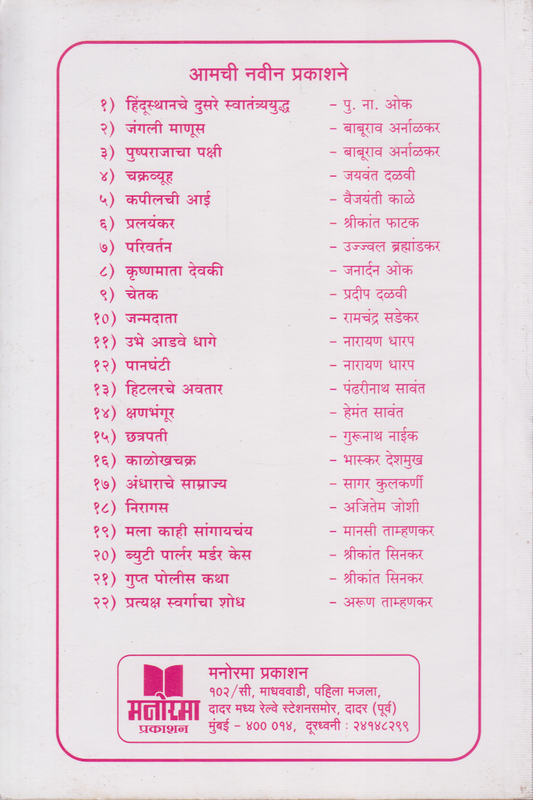 आमची नवीन प्रकाशने
१) हिंदूस्थानचे दुसरे स्वातंत्र्ययुद्ध – पु. ना. ओक
२) जंगली माणूस – बाबूराव अर्नाळकर
३) पुष्पराजाचा पक्षी – बाबूराव अर्नाळकर
४) चक्रव्यूह – जयवंत दळवी
५) कपीलची आई – वैजयंती काळे
६) प्रलयंकर – श्रीकांत फाटक
७) परिवर्तन – उज्ज्वल ब्रह्मांडकर
८) कृष्णमाता देवकी – जनार्दन ओक
९) चेतक – प्रदीप दळवी
१०) जन्मदाता – रामचंद्र सडेकर
११) उभे आडवे धागे – नारायण धारप
१२) पानघंटी – नारायण धारप
१३) हिटलरचे अवतार – पंढरीनाथ सावंत
१४) क्षणभंगूर – हेमंत सावंत
१५) छत्रपती – गुरूनाथ नाईक
१६) काळोखचक्र – भास्कर देशमुख
१७) अंधाराचे साम्राज्य – सागर कुलकर्णी
१८) निरागस – अजितेम जोशी
१९) मला काही सांगायचंय – मानसी ताम्हणकर
२०) ब्युटी पार्लर मर्डर केस – श्रीकांत सिनकर
२१) गुप्त पोलीस कथा – श्रीकांत सिनकर
२२) प्रत्यक्ष स्वर्गाचा शोध – अरूण ताम्हणकर
मनोरमा
प्रकाशन
मनोरमा प्रकाशन
१०२/सी, माधववाडी, पहिला मजला,
दादर मध्य रेल्वे स्टेशनसमोर, दादर (पूर्व)
मुंबई - ४०० ०१४, दूरध्वनी : २४१४८२९९